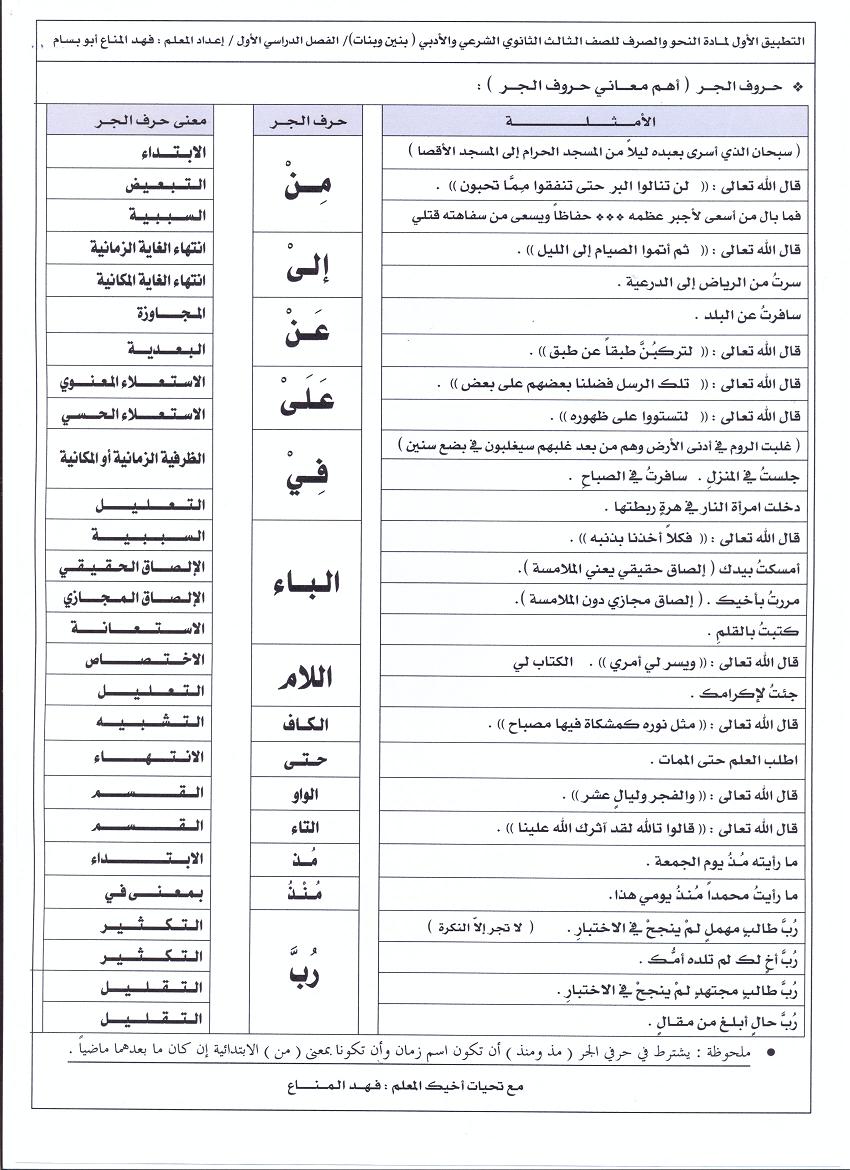 التطبيق الأول لمادة النحو والصرف للصف الثالث الثانوي الشرعي والأدبي ( بنين وبنات)/ الفصل الدراسي الأول / إعداد المعلم : فهد المناع أبو بسام
❖ حروف الجر ( أهم معاني حروف الجر ) :
الأمثلة حرف الجر معنى حرف الجر
( سبحان الذي أسرى بعبده ليلاً من المسجد الحرام إلى المسجد الأقصا ) مِنْ الابتداء
قال الله تعالى : (( لن تنالوا البر حتى تنفقوا مِمَّا تحبون )) . التبعيض
فما بال من أسعى لأجبر عظمه *** حفاظاً ويسعى من سفاهته قتلي السببية
قال الله تعالى : (( ثم أتموا الصيام إلى الليل )) . إلىْ انتهاء الغاية الزمانية
سرتُ من الرياض إلى الدرعية . انتهاء الغاية المكانية
سافرتُ عن البلد . عَنْ المجاوزة
قال الله تعالى : (( لتركبُنَّ طبقاً عن طبق )) . البعدية
قال الله تعالى : (( تلك الرسل فضلنا بعضهم على بعض )) . عَلَىْ الاستعلاء المعنوي
قال الله تعالى : (( لتستووا على ظهوره )) . الاستعلاء الحسي
( غلبت الروم في أدنى الأرض وهم من بعد غلبهم سيغلبون في بضع سنين ) فِيْ الظرفية الزمانية أو المكانية
جلستُ في المنزلِ . سافرتُ في الصباحِ .
دخلت امرأة النار في هرةٍ ربطتها . التعليل
قال الله تعالى : (( فكلاً أخذنا بذنبه )) . الباء السببية
أمسكتُ بيدك ( إلصاق حقيقي يعني الملامسة ). الإلصاق الحقيقي
مررتُ بأخيك . ( إلصاق مجازي دون الملامسة ). الإلصاق المجازي
كتبتُ بالقلمِ . الاستعانة
قال الله تعالى : (( ويسر لي أمري )) . الكتاب لي اللام الاختصاص
جئتُ لإكرامك . التعليل
قال الله تعالى : (( مثل نوره كمشكاة فيها مصباح )) . الكاف التشبيه
اطلب العلم حتى الممات . حتى الانتهاء
قال الله تعالى : (( والفجر وليالٍ عشر )) . الواو القسم
قال الله تعالى : (( قالوا تالله لقد آثرك الله علينا )) . التاء القسم
ما رأيته مُذُ يوم الجمعة . مُذ الابتداء
ما رأيتُ محمداً مُنذُ يومي هذا. مُنْذُ بمعنى في
رُبَّ طالبٍ مهملٍ لمْ ينجحْ في الاختبارِ . ( لا تجر إلاّ النكرة ) رُبَّ التكثير
رُبَّ أخٍ لك لم تلده أمُّك . التكثير
رُبَّ طالبٍ مجتهدٍ لمْ ينجحْ في الاختبارِ . التقليل
رُبَّ حالٍ أبلغ من مقالٍ . التقليل
● ملحوظة : يشترط في حرفي الجر ( مذ ومنذ ) أن تكون اسم زمان وأن تكونا بمعنى ( من ) الابتدائية إن كان ما بعدهما ماضياً .
مع تحيات أخيك المعلم : فهد المناع